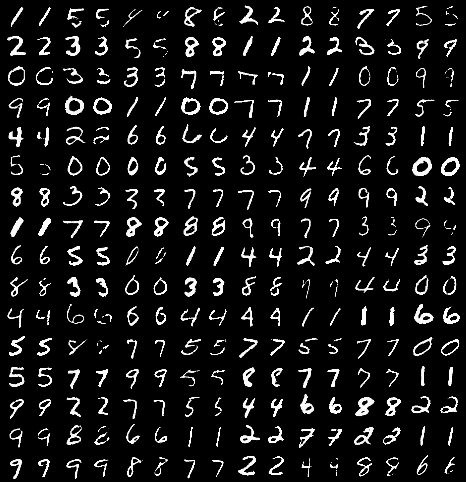 1 1 5 5 9 9 8 8 2 2 8 8 7 7 5 5
2 2 3 3 5 5 8 8 1 1 2 2 3 3 9 9
0 0 3 3 3 3 7 7 7 7 1 1 0 0 9 9
9 9 0 0 1 1 0 0 7 7 1 1 7 7 5 5
4 4 2 2 6 6 6 6 4 4 7 7 3 3 1 1
5 5 0 0 0 0 5 5 3 3 4 4 6 6 0 0
8 8 3 3 3 3 7 7 7 7 9 9 9 9 2 2
1 1 7 7 8 8 8 8 9 9 7 7 3 3 9 9
6 6 5 5 0 0 1 1 4 4 2 2 4 4 3 3
8 8 3 3 0 0 3 3 8 8 7 7 4 4 0 0
4 4 6 6 6 6 4 4 4 4 1 1 1 1 6 6
5 5 8 8 7 7 5 5 7 7 5 5 7 7 0 0
5 5 7 7 9 9 5 5 8 8 7 7 7 7 1 1
9 9 2 2 7 7 5 5 4 4 6 6 8 8 2 2
9 9 8 8 6 6 1 1 2 2 7 7 2 2 1 1
9 9 9 9 8 8 7 7 2 2 4 4 8 8 6 6